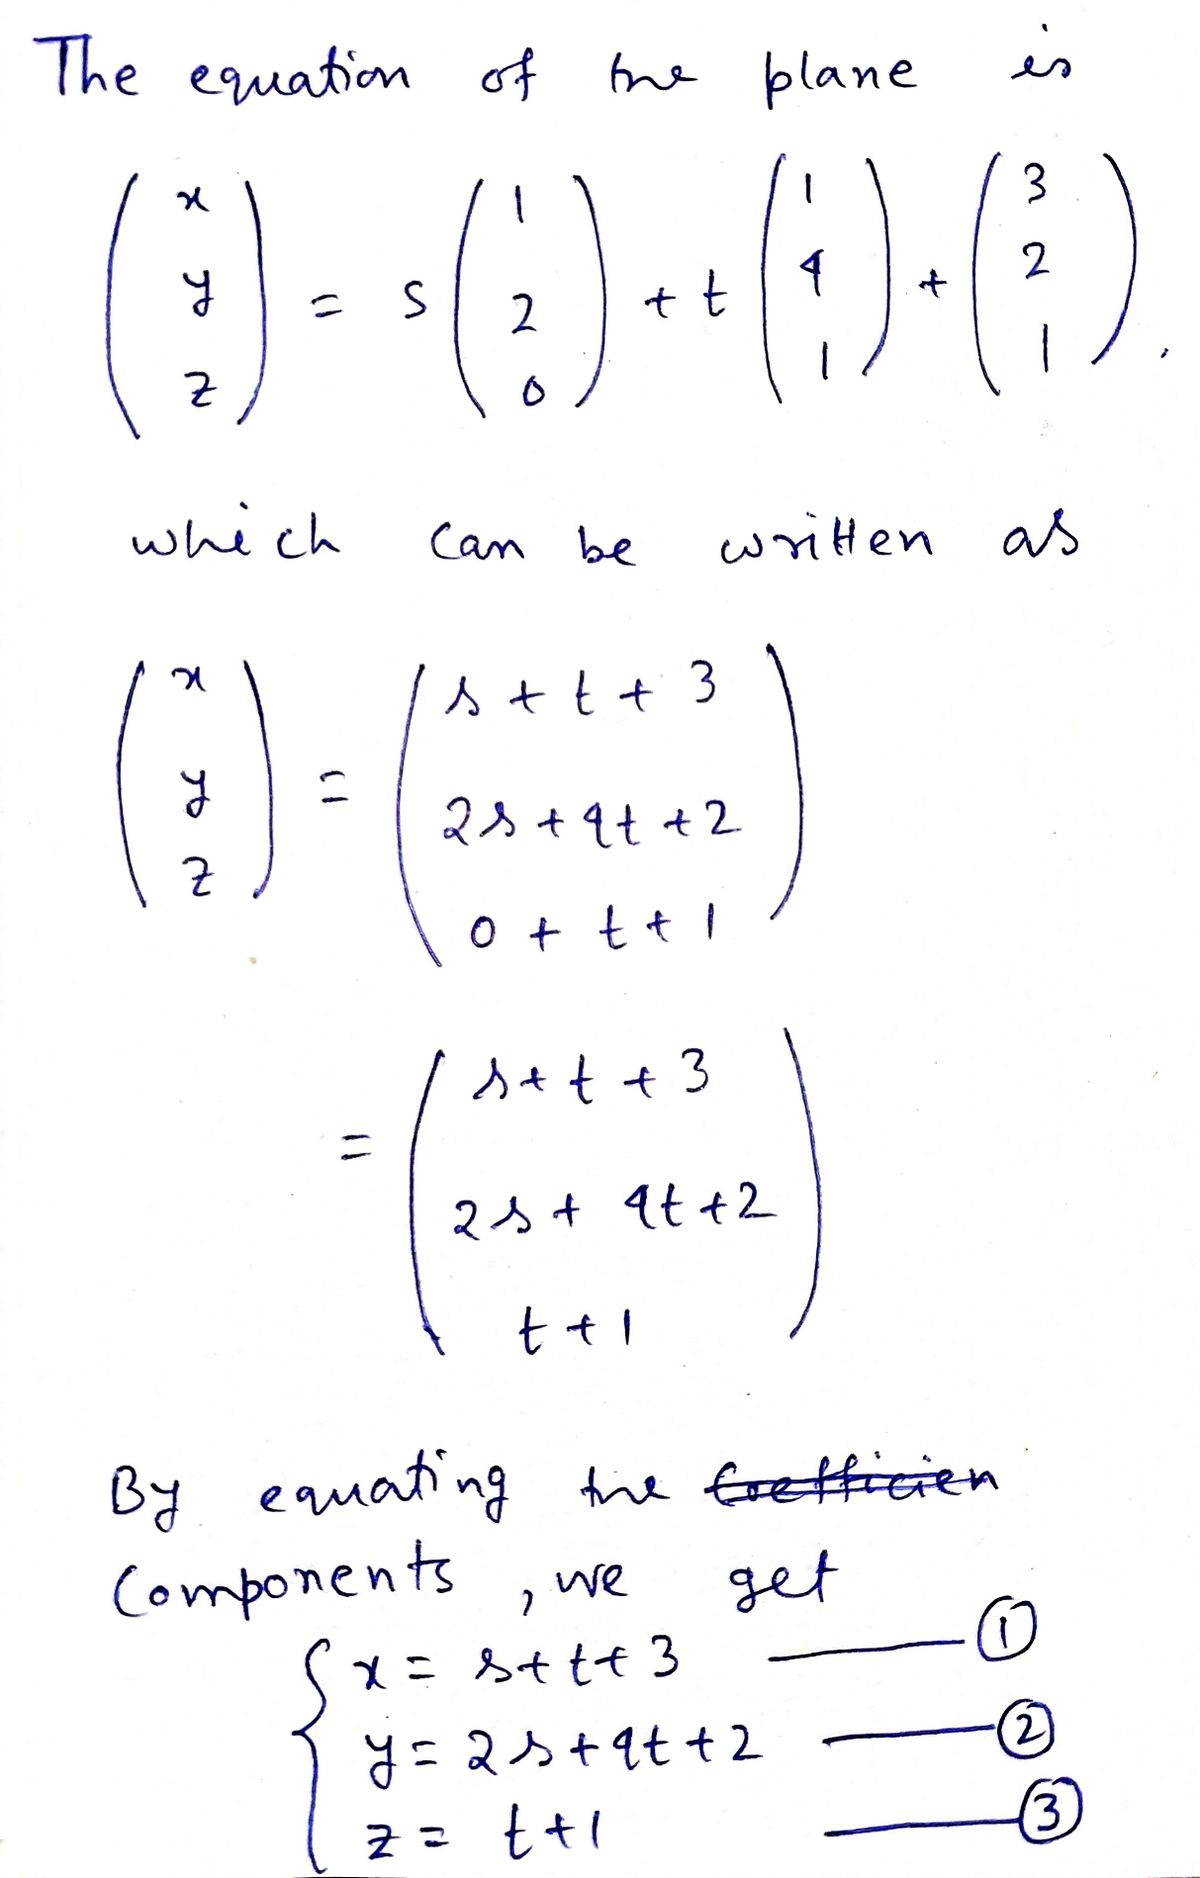 The equation of the plane is
( x y z ) = s ( 1 2 0 ) + t ( 1 4 1 ) + ( 3 2 1 ).
which can be written as
( x y z ) = ( s + t + 3
2s + 4t + 2
0 + t + 1 )
= ( s + t + 3
2s + 4t + 2
t + 1 )
By equating the Coefficien
Components, we get
{ x = s + t + 3 —— ①
y = 2s + 4t + 2 —— ②
z = t + 1 —— ③